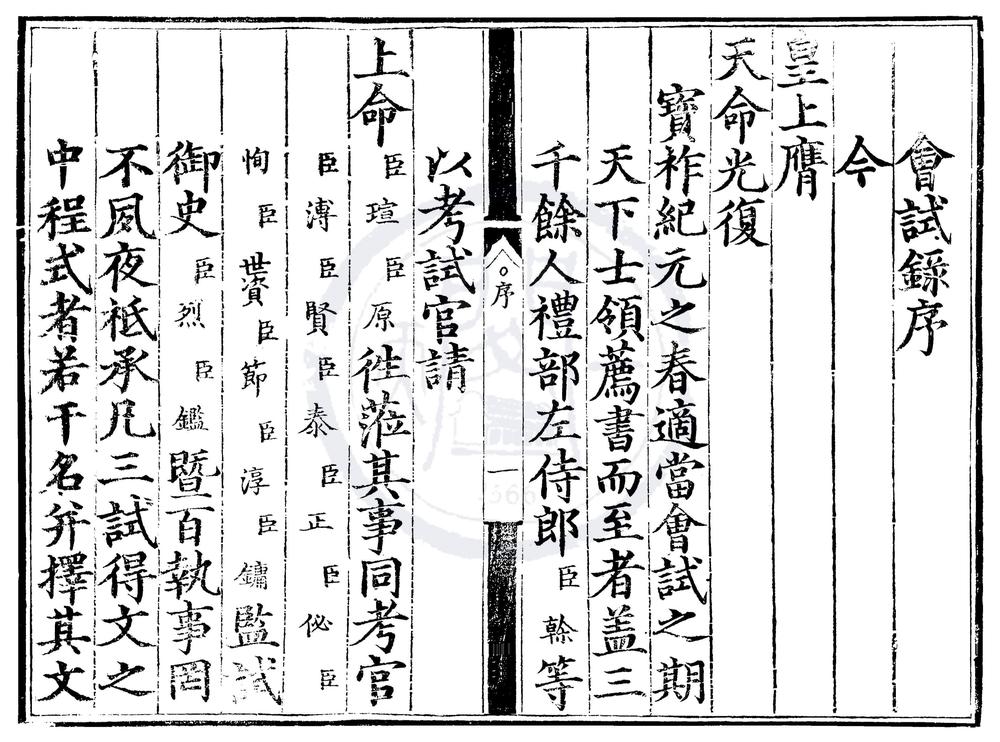 會試錄序
今
皇上膺
天命光復
寶祚紀元之春適當會試之期
天下士領薦書而至者盖三
千餘人禮部左侍郎臣榦等
序
一
以考試官請
上命
臣瑄臣原徃蒞其事同考官
臣溥臣賢臣泰臣正臣佖臣
恂臣世資臣節臣淳臣鏞監試
御史臣烈臣鑑暨百執事罔
不夙夜祗承凡三試得文之
中程式者若干名并擇其文